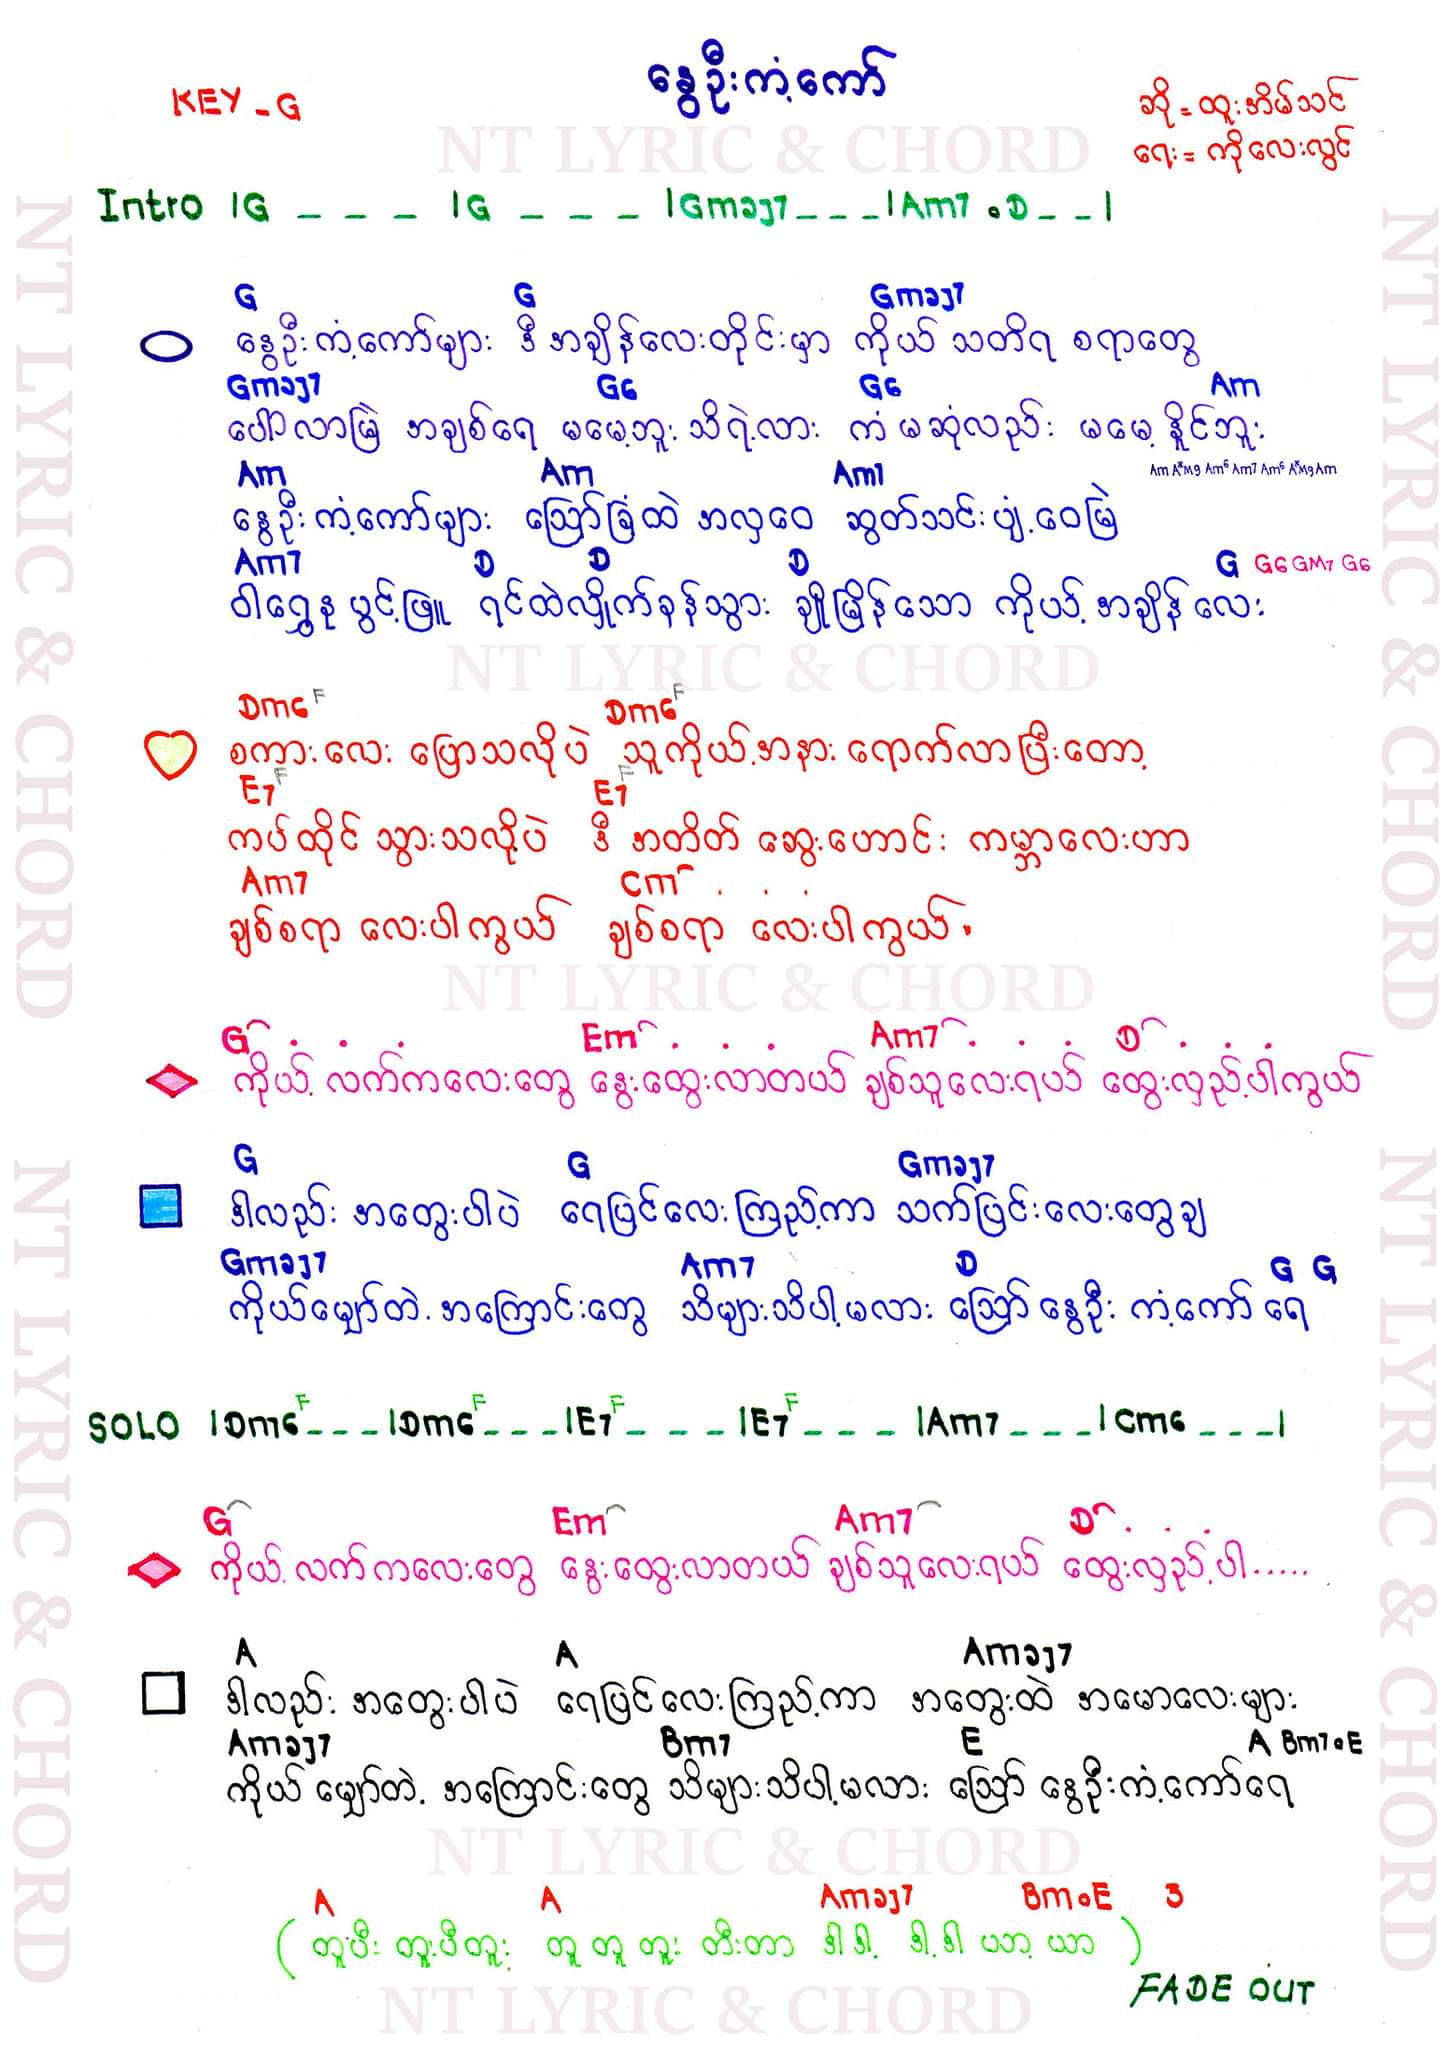 နွေဦးကံ့ကော်
KEY - G
ဆို = ထူးအိမ်သင်
ရေး = ကိုလေးလွင်
NT LYRIC & CHORD
Intro |G _ _ _ |G _ _ _ |Gmaj7 _ _ _ |Am7 . D _ _ |
G G Gmaj7
နွေဦးကံ့ကော်များ ဒီအချိန်လေးတိုင်းမှာ ကိုယ် သတိရ စရာတွေ
Gmaj7 G6 G6 Am
ပေါ်လာမြဲ အချစ်ရေ မမေ့ဘူး သိရဲ့လား ကံ မဆုံလည်း မမေ့ နိူင်ဘူး
Am Am Am7 Am A#M9 Am6 Am7 Am6 A#M9 Am
နွေဦးကံ့ကော်များ သြော်ခြံထဲ အလှဝေ ဆွတ်သင်းပျံ့ဝေမြဲ
Am7 D D D G G6 GM7 G6
ဝါရွှေနု ပွင့်ဖြူ ရင်ထဲလှိုက်ခုန်သွား ချိုမြိန်သော ကိုယ့် အချိန် လေး
NT LYRIC & CHORD
Dm6 F Dm6 F
စကားလေး ပြောသလိုပဲ သူကိုယ့်အနား ရောက်လာပြီးတော့
E7 F E7 F
ကပ်ထိုင် သွားသလို့ပဲ ဒီ အတိတ် ဆွေးဟောင်း ကမ္ဘာလေးဟာ
Am7 Cm . . .
ချစ်စရာ လေးပါကွယ် ချစ်စရာ လေးပါကွယ်.
NT LYRIC & CHORD
G . . . Em . . . Am7 . . . D . . .
ကိုယ့် လက်ကလေးတွေ နွေးထွေးလာတယ် ချစ်သူလေးရယ် ထွေးလှည့်ပါကွယ်
G G Gmaj7
ဒါလည်း အတွေးပါပဲ ရေပြင်လေးကြည့်ကာ သက်ပြင်းလေးတွေချ
Gmaj7 Am7 D G G
ကိုယ်မျှော်တဲ့ အကြောင်းတွေ သိများသိပါ့မလား သြော် နွေဦး ကံ့ကော် ရေ
SOLO |Dm6 F _ _ _ |Dm6 F _ _ _ |E7 F _ _ _ |E7 F _ _ _ |Am7 _ _ _ |Cm6 _ _ _ |
G Em Am7 D . . .
ကိုယ့် လက်ကလေးတွေ နွေးထွေးလာတယ် ချစ်သူလေးရယ် ထွေးလှည့်ပါ.....
A A Amaj7
ဒါလည်း အတွေးပါပဲ ရေပြင်လေးကြည့်ကာ အတွေးထဲ အမောလေးများ
Amaj7 Bm7 E A Bm7 . E
ကိုယ် မျှော်တဲ့ အကြောင်းတွေ သိများသိပါ့မလား သြော် နွေဦးကံ့ကော်ရေ
NT LYRIC & CHORD
A A Amaj7 Bm . E 3
( တူပီး တူးပီတူး တူ တူ တူး တီးတာ ဒါဒါ့ ဒါ့ဒါ ပဘ့ ယာ )
FADE OUT
NT LYRIC & CHORD
NT LYRIC & CHORD
NT LYRIC & CHORD
NT LYRIC & CHORD
NT LYRIC & CHORD